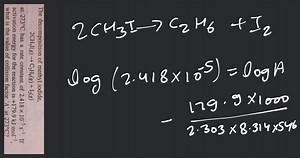 The decomposition of methyl iodide,
2CH₃I(g) → C₂H₆(g) + I₂(g)
at 273°C has a rate constant of 2.418 × 10⁻⁵ s⁻¹. If
activation energy for the reaction is +179.9 kJ mol⁻¹,
what is the value of collision factor 'A' at 273°C?
2CH₃I → C₂H₆ + I₂
log (2.418×10⁻⁵) = log A
- 179.9×1000
2.303×8.314×546